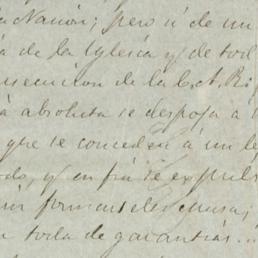 Nacion; pero si de un
de la Iglesia y de tod
secucion de la C. A. R
absoluta se despoja a
que se conceden á un
y en fin se expul
formarseles causa;
toda de garantias...